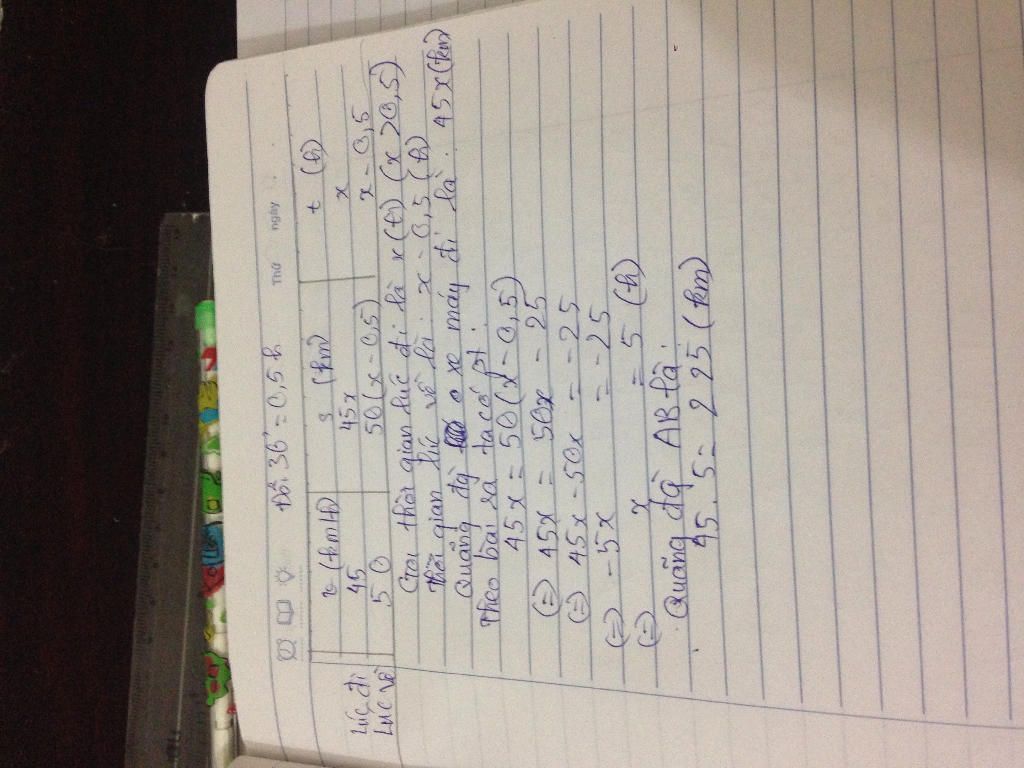 Thứ ngày
Đổi 30' = 0,5 h
v (km/h) s (km) t (h)
Lúc đi 45 45x x
Lúc về 50 50(x - 0,5) x - 0,5
Gọi thời gian lúc đi là x (h) (x > 0,5)
Thời gian lúc về là : x - 0,5 (h)
Quãng đg xe máy đi là : 45x (km)
Theo bài ra ta có pt :
45x = 50(x - 0,5)
(=) 45x = 50x - 25
(=) 45x - 50x = -25
(=) -5x = -25
(=) x = 5 (h)
Quãng đg AB là :
45 . 5 = 225 (km)